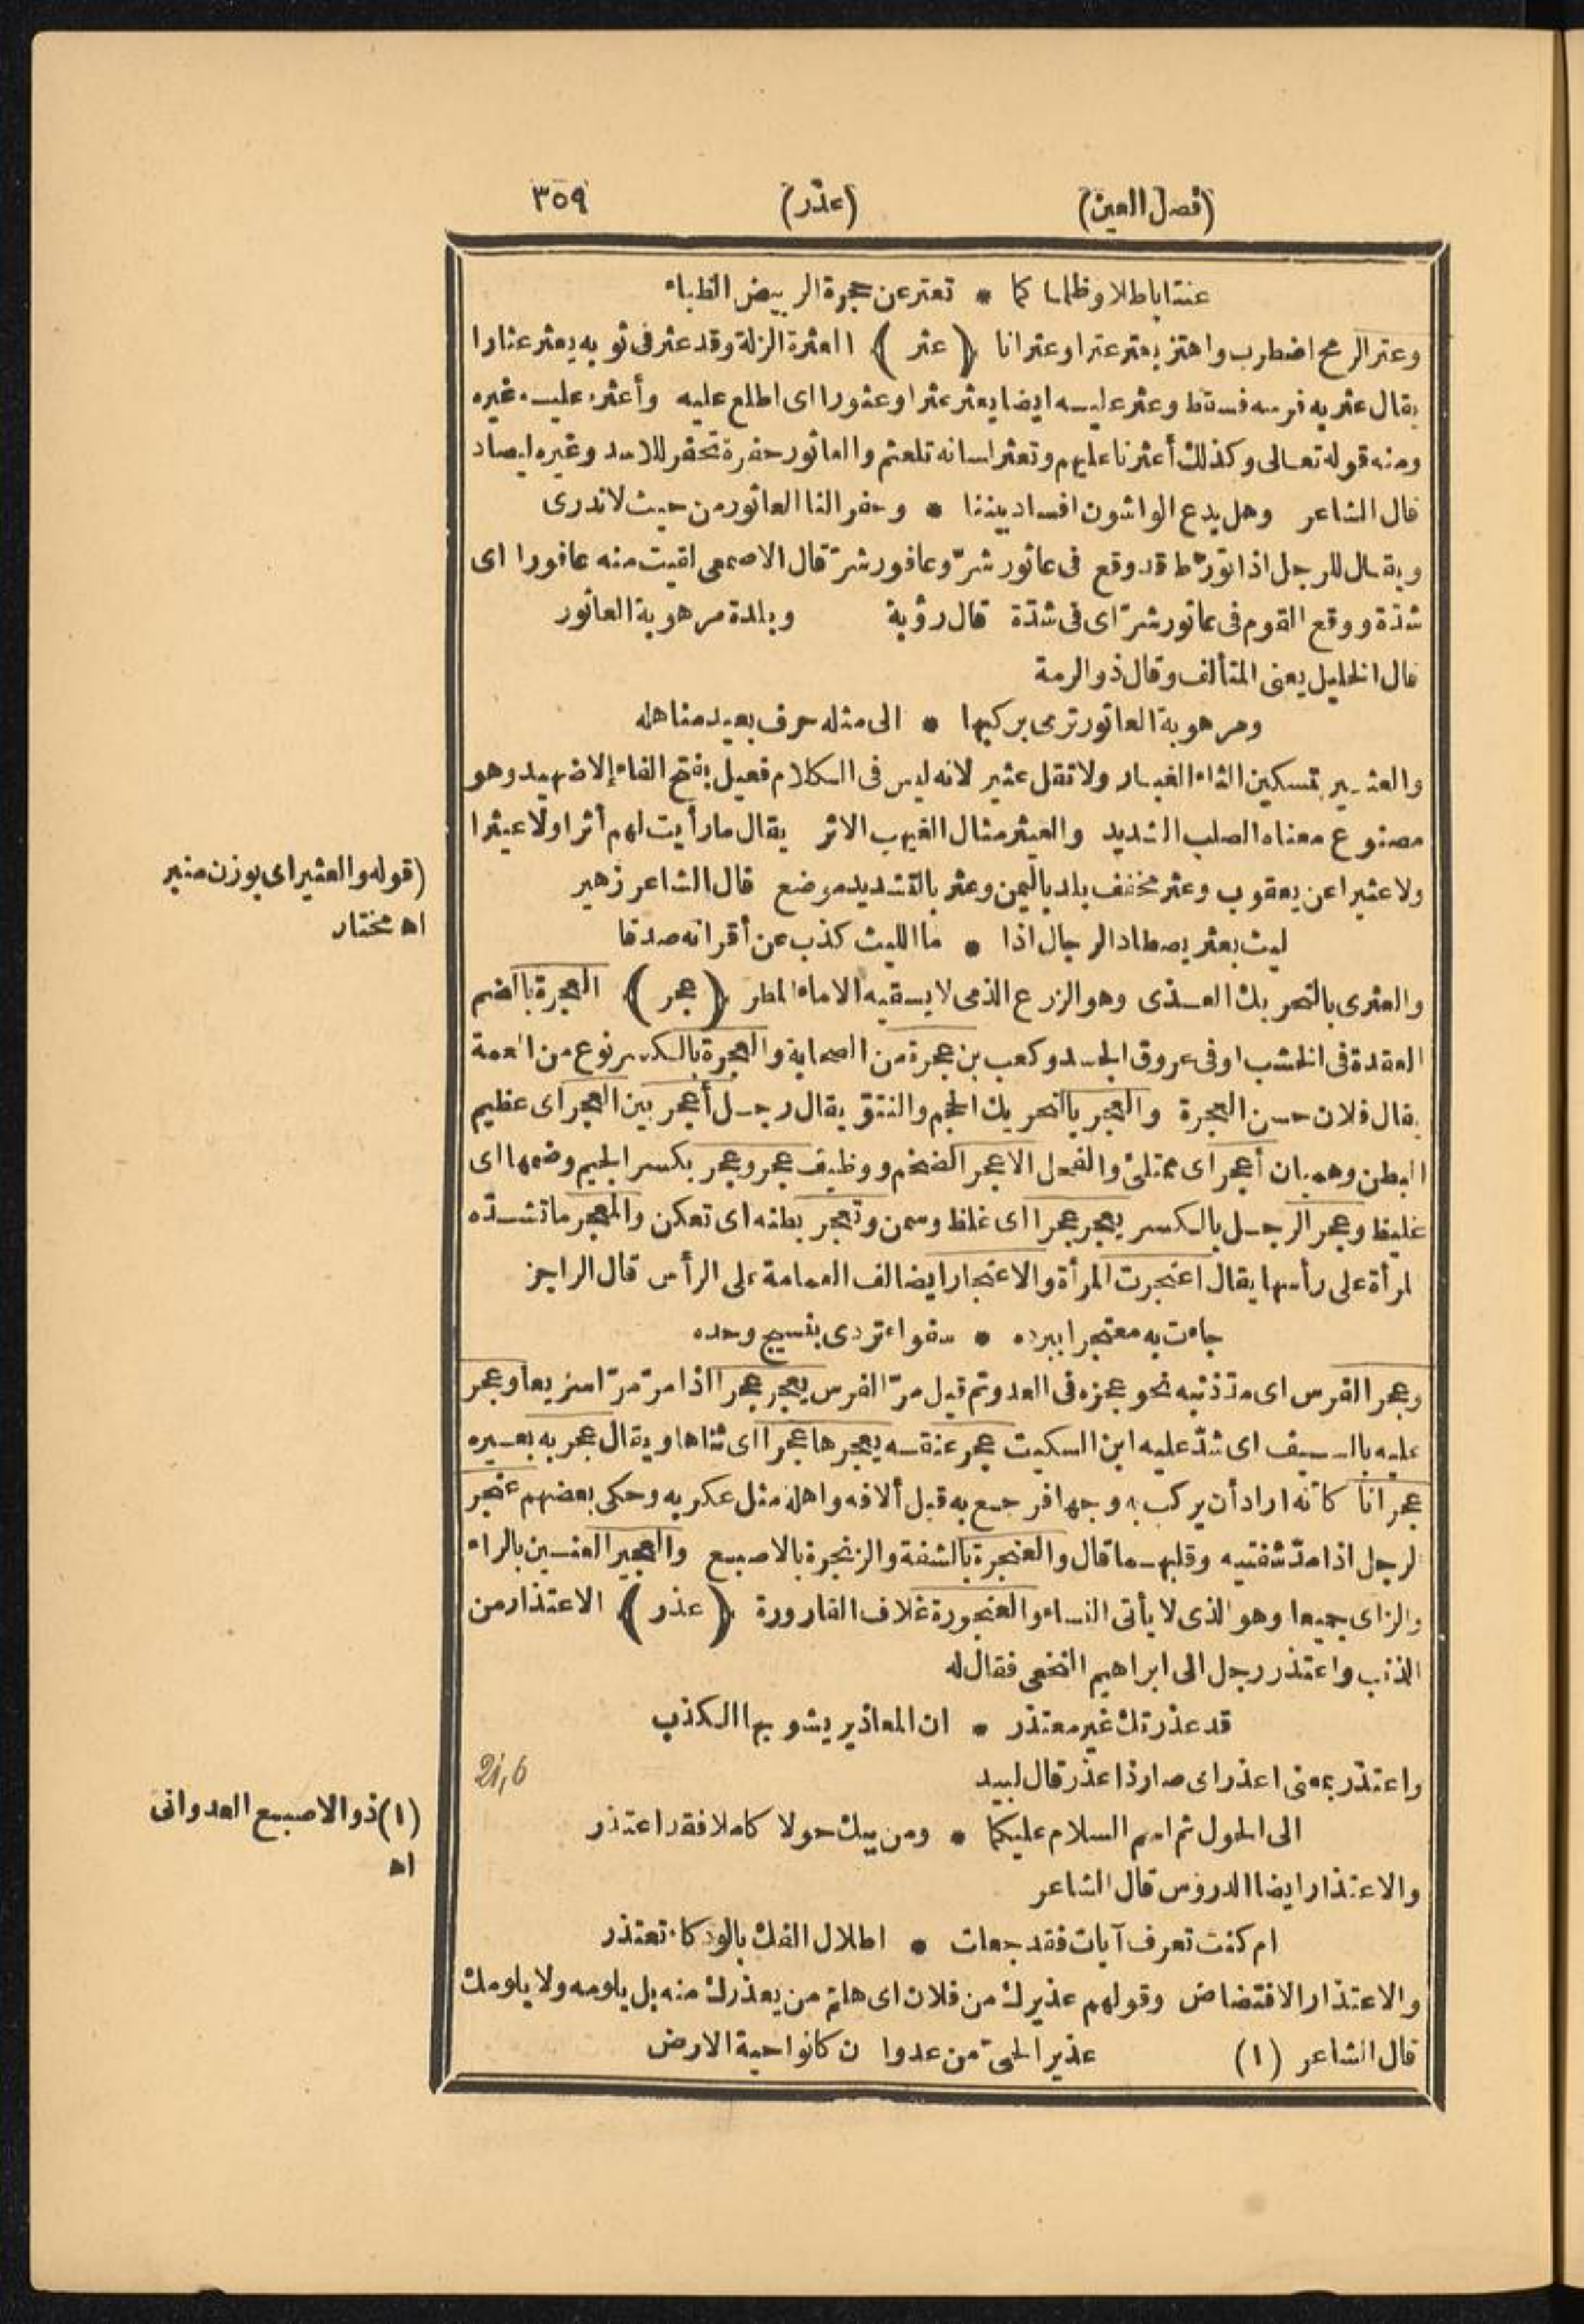 (فصل العين) (عذر) ٣٥٩
عنتا باطلا وظلما كما * تعتر عن حجرة الربيض الظباء
وعتر الرمح اضطرب واهتز يعتر عترا وعترانا ﴿ عثر ﴾ العثرة الزلة وقد عثر فى ثوبه يعثر عثارا
يقال عثر به فرسه فسقط وعثر عليه ايضا يعثر عثرا وعثورا اى اطلع عليه وأعثره عليه غيره
ومنه قوله تعالى وكذلك أعثرنا عليهم وتعثر لسانه تلعثم والعاثور حفرة تحفر للاسد وغيره ليصاد
قال الشاعر وهل يدع الواشون افساد بيننا * وحفر النا العاثور من حيث لا ندرى
ويقال للرجل اذا تورّط قد وقع فى عاثور شرّ وعافور شرّ قال الاصمعى لقيت منه عافورا اى
شدّة ووقع القوم فى عاثور شرّ اى فى شدّة قال رؤبة وبلدة مرهوبة العاثور
قال الخليل يعنى المتألف وقال ذو الرمة
ومرهوبة العاثور ترمى بركبها * الى مثله حرف بعيد مناهله
والعثير بتسكين الثاء الغبار ولا تقل عثير لانه ليس فى الكلام فعيل بفتح الفاء إلا ضهيد وهو
مصنوع معناه الصلب الشديد والعيثر مثال الغيهب الاثر يقال ما رأيت لهم أثرا ولا عيثرا
ولا عثيرا عن يعقوب وعثر مخفف بلد باليمن وعثر بالتشديد موضع قال الشاعر زهير
ليث بعثر يصطاد الرجال اذا * ما الليث كذب عن أقرانه صدقا
والعثرى بالتحريك العذى وهو الزرع الذى لا يسقيه الا ماء المطر ﴿ عجر ﴾ العجرة بالضم
العقدة فى الخشب او فى عروق الجسد وكعب بن عجرة من الصحابة والعجرة بالكسر نوع من العمة
يقال فلان حسن العجرة والعجر بالتحريك الحجم والنتوّ يقال رجل أعجر بين العجر اى عظيم
البطن وهميان أعجر اى ممتلئ والفحل الاعجر الضخم ووظيف عجر وعجر بكسر الجيم وضمها اى
غليظ وعجر الرجل بالكسر يعجر عجرا اى غلظ وسمن وتعجر بطنه اى تعكن والمعجر ما تشدّه
لمرأة على رأسها يقال اعتجرت المرأة والاعتجار ايضا لف العمامة على الرأس قال الراجز
جاءت به معتجرا ببرده * سفواء تردى بنسيج وحده
وعجر الفرس اى مدّ ذنبه نحو عجزه فى العدو ثم قيل مرّ الفرس يعجر عجرا اذا مرّ مرّا سريعا وعجر
عليه بالسيف اى شدّ عليه ابن السكيت عجر عنقه يعجرها عجرا اى ثناها ويقال عجر به بعيره
عجرانا كأنه اراد أن يركب به وجها فرجع به قبل ألافه واهله مثل عكر به وحكى بعضهم عنجر
لرجل اذا مدّ شفتيه وقلبهما قال والعنجرة بالشفة والزنجرة بالاصبع والعجير العنين بالراء
والزاى جميعا وهو الذى لا يأتى النساء والعنجورة غلاف القارورة ﴿ عذر ﴾ الاعتذار من
الذنب واعتذر رجل الى ابراهيم النخعى فقال له
قد عذرتك غير معتذر * ان المعاذير يشوبها الكذب
واعتذر بمعنى اعذر اى صار ذا عذر قال لبيد
21,6
الى الحول ثم اسم السلام عليكما * ومن يبك حولا كاملا فقد اعتذر
والاعتذار ايضا الدروس قال الشاعر
ام كنت تعرف آيات فقد جعلت * اطلال الفك بالودكاء تعتذر
والاعتذار الافتضاض وقولهم عذيرك من فلان اى هلمّ من يعذرك منه بل يلومه ولا يلومك
قال الشاعر (١) عذير الحىّ من عدوا ن كانوا حية الارض
(قوله والعثير اى بوزن منبر
اه مختار
(١) ذو الاصبع العدوانى
اه